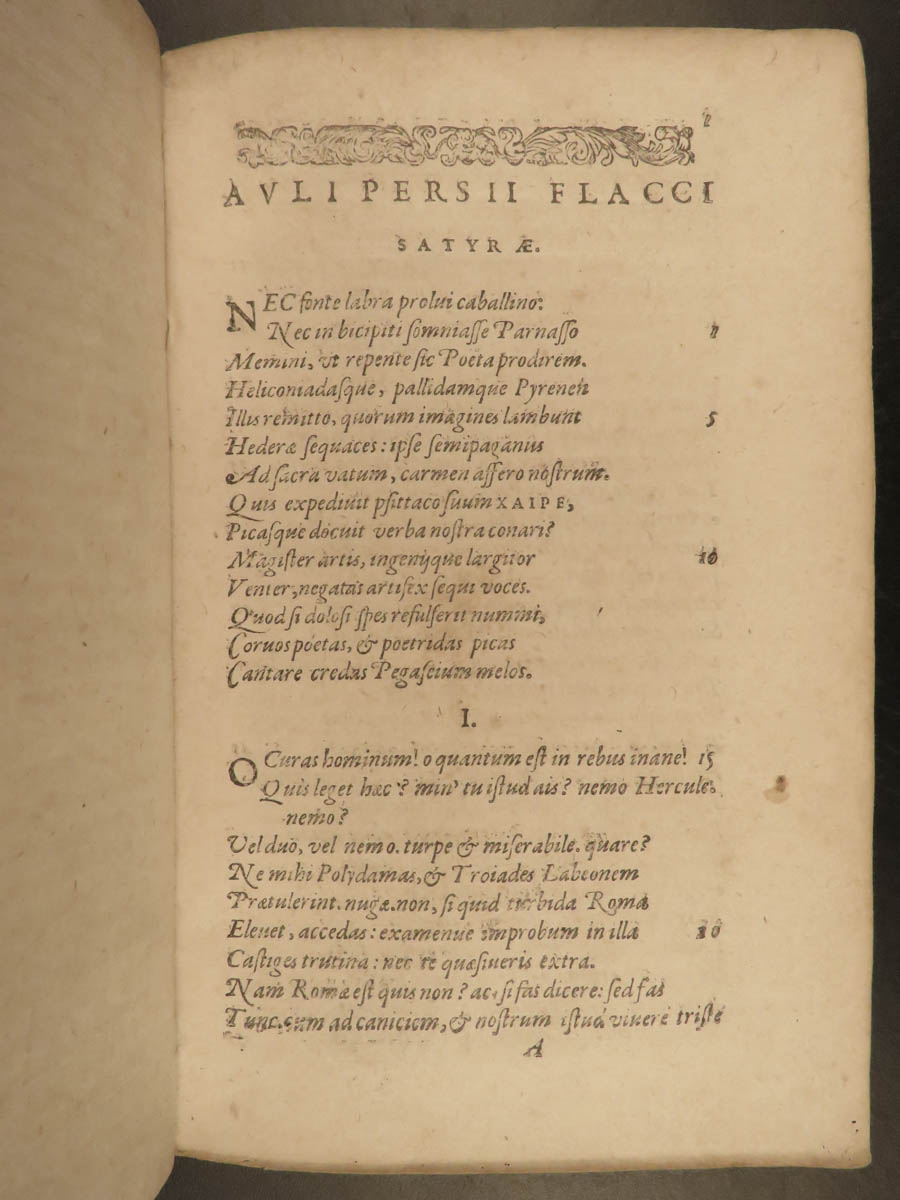 AVLI PERSII FLACCI
SATYRÆ.
NEC fonte labra prolui caballino:
Nec in bicipiti somniasse Parnasso
Memini, vt repente sic Poeta prodirem.
Heliconiadasque, pallidamque Pyrenen
Illis remitto, quorum imagines lambunt 5
Hederæ sequaces: ipse semipaganus
Ad sacra vatum, carmen affero nostrum.
Quis expediuit psittaco suum ΧΑΙΡΕ,
Picasque docuit verba nostra conari?
Magister artis, ingenijque largitor 10
Venter, negatas artifex sequi voces.
Quod si dolosi spes refulserit nummi,
Coruos poetas, & poetridas picas
Cantare credas Pegaseium melos.
I.
O Curas hominum! o quantum est in rebus inane! 15
Quis leget hæc? min' tu istud ais? nemo Hercule.
nemo?
Vel duo, vel nemo. turpe & miserabile. quare?
Ne mihi Polydamas, & Troiades Labeonem
Prætulerint. nugæ. non, si quid turbida Roma
Eleuet, accedas: examenue improbum in illa 20
Castiges trutina: nec te quæsiueris extra.
Nam Romæ est quis non? ac, si fas dicere: sed fas
Tunc, cum ad caniciem, & nostrum istud viuere triste
A